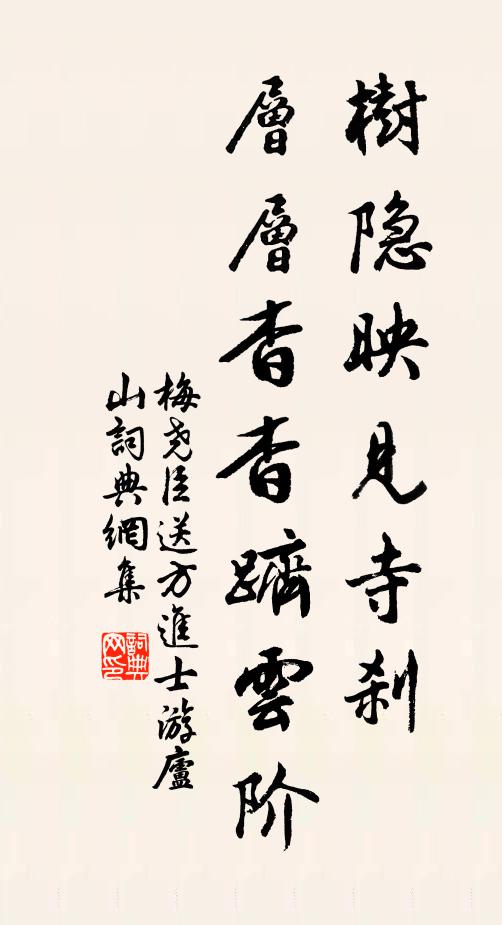 樹隐映見寺刹
層層杳杳躋雲阶
梅尧臣送方進士游廬
山詞典網集
詞典網印